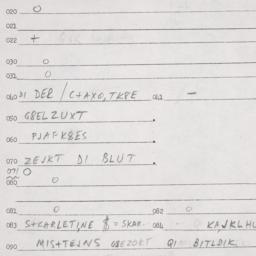 020 O
021
022 +
030 O
031 O
040 DI DER /C+AXO,TKPE 041 —
050 GBELZUXT .
060 PJAFK8ES
070 ZEJKT DI BLUT .
071 O
080 O
081 O 082 O
083 S+KARLETINE = SKAR- 084 KAJKLHU
090 MIS+TEJNS GEZOKT QI BITLDIK